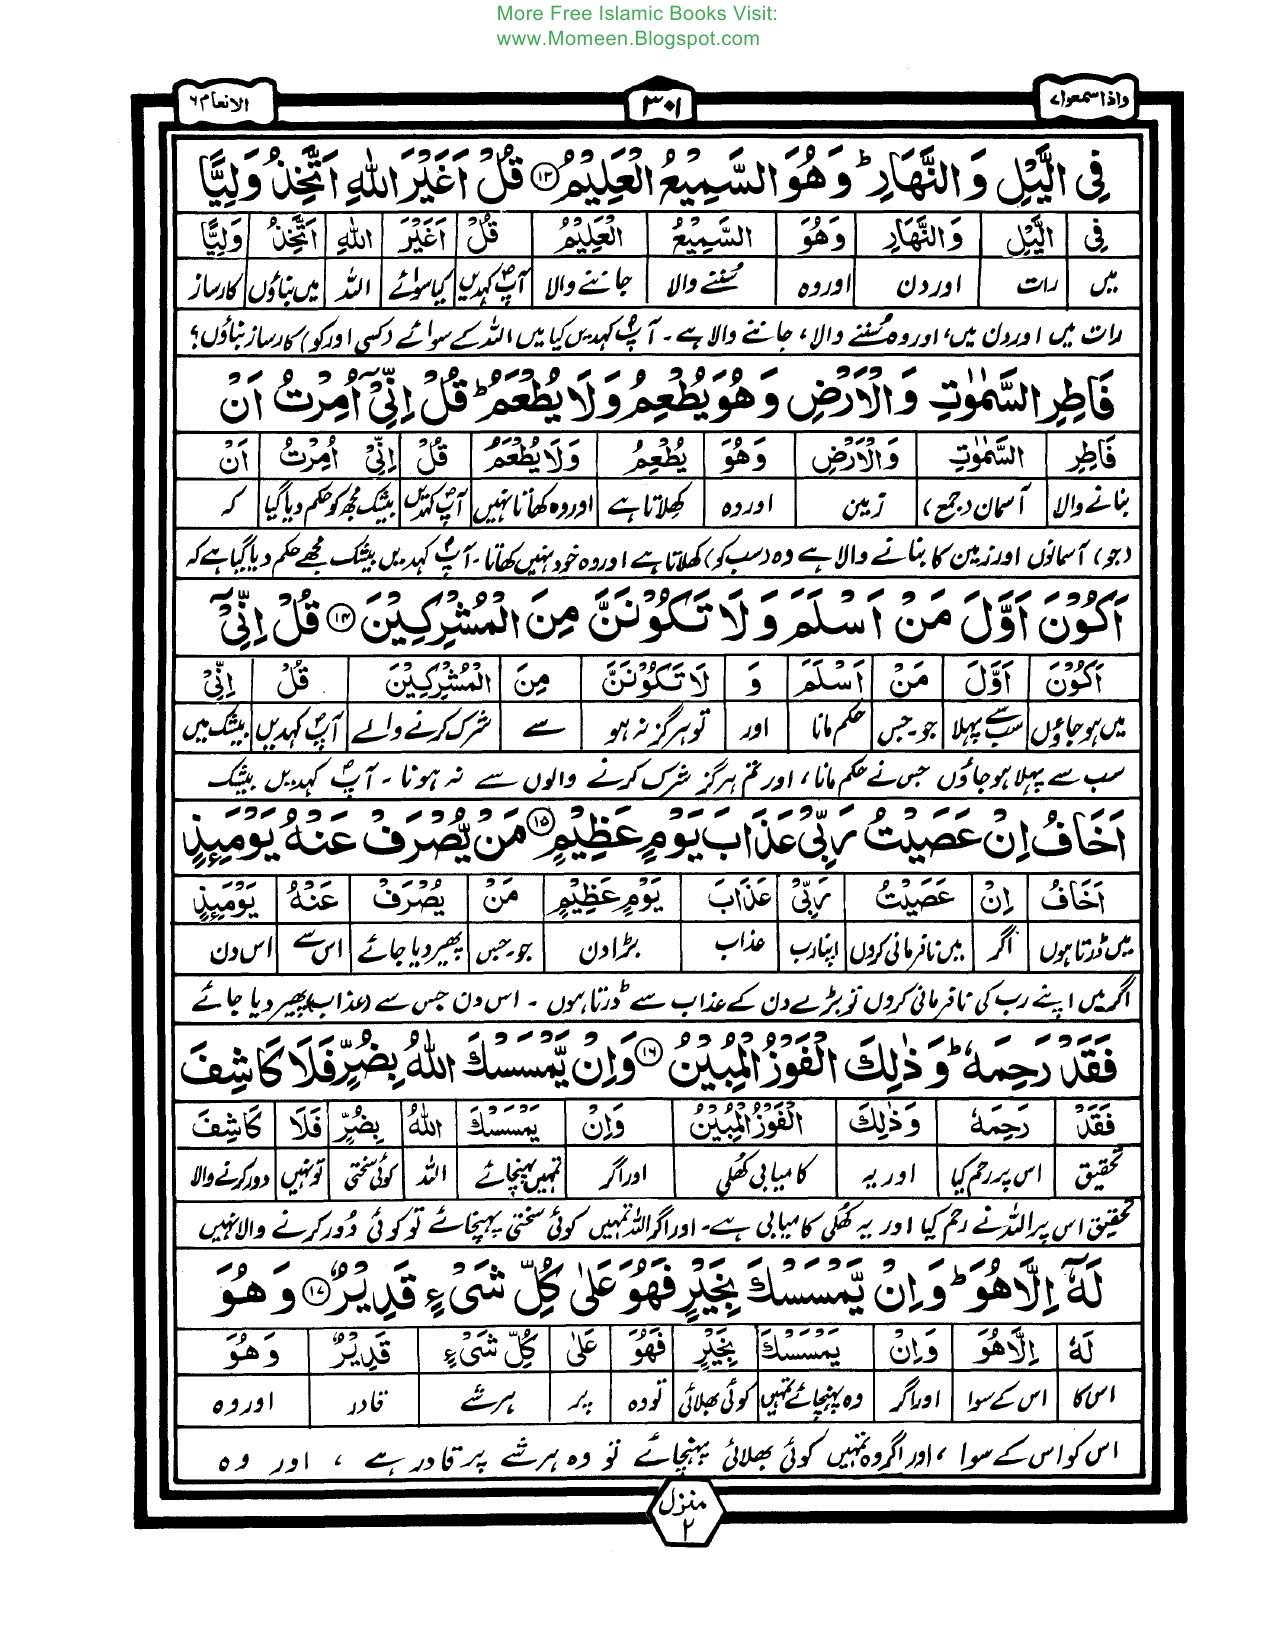 More Free Islamic Books Visit:
www.Momeen.Blogspot.com
واذا سمعوا ۷ ۳۰۱ الانعام ۶
فِی الَّیْلِ وَالنَّهَارِ ؕ وَهُوَ السَّمِیْعُ الْعَلِیْمُ ۱۳ قُلْ اَغَیْرَ اللّٰهِ اَتَّخِذُ وَلِیًّا
فِی الَّیْلِ وَالنَّهَارِ وَهُوَ السَّمِیْعُ الْعَلِیْمُ قُلْ اَغَیْرَ اللّٰهِ اَتَّخِذُ وَلِیًّا
میں رات اور دن اور وہ سننے والا جاننے والا آپؐ کہدیں کیا سوائے اللہ میں بناؤں کارساز
رات میں اور دن میں، اور وہ سننے والا، جاننے والا ہے۔ آپؐ کہدیں کیا میں اللہ کے سوائے (کسی اور کو) کارساز بناؤں؟
فَاطِرِ السَّمٰوٰتِ وَالْاَرْضِ وَهُوَ یُطْعِمُ وَلَا یُطْعَمُ ؕ قُلْ اِنِّیْۤ اُمِرْتُ اَنْ
فَاطِرِ السَّمٰوٰتِ وَالْاَرْضِ وَهُوَ یُطْعِمُ وَلَا یُطْعَمُ قُلْ اِنِّیْۤ اُمِرْتُ اَنْ
بنانے والا آسمان (جمع) زمین اور وہ کھلاتا ہے اور وہ کھاتا نہیں آپؐ کہدیں بیشک مجھ کو حکم دیا گیا کہ
(جو) آسمانوں اور زمین کا بنانے والا ہے وہ (سب کو) کھلاتا ہے اور وہ خود نہیں کھاتا۔ آپؐ کہدیں بیشک مجھے حکم دیا گیا ہے کہ
اَكُوْنَ اَوَّلَ مَنْ اَسْلَمَ وَلَا تَكُوْنَنَّ مِنَ الْمُشْرِكِیْنَ ۱۴ قُلْ اِنِّیْۤ
اَكُوْنَ اَوَّلَ مَنْ اَسْلَمَ وَ لَا تَكُوْنَنَّ مِنَ الْمُشْرِكِیْنَ قُلْ اِنِّیْۤ
میں ہو جاؤں سب سے پہلا جو۔ جس حکم مانا اور تو ہرگز نہ ہو سے شرک کرنے والے آپؐ کہدیں بیشک میں
سب سے پہلا ہو جاؤں جس نے حکم مانا، اور تم ہرگز شرک کرنے والوں سے نہ ہونا۔ آپؐ کہدیں بیشک
اَخَافُ اِنْ عَصَیْتُ رَبِّیْ عَذَابَ یَوْمٍ عَظِیْمٍ ۱۵ مَنْ یُّصْرَفْ عَنْهُ یَوْمَىِٕذٍ
اَخَافُ اِنْ عَصَیْتُ رَبِّیْ عَذَابَ یَوْمٍ عَظِیْمٍ مَنْ یُّصْرَفْ عَنْهُ یَوْمَىِٕذٍ
میں ڈرتا ہوں اگر میں نافرمانی کروں اپنا رب عذاب بڑا دن جو۔ جس پھیر دیا جائے اس سے اس دن
اگر میں اپنے رب کی نافرمانی کروں تو بڑے دن کے عذاب سے ڈرتا ہوں۔ اس دن جس سے (عذاب) پھیر دیا جائے
فَقَدْ رَحِمَهٗ ؕ وَذٰلِكَ الْفَوْزُ الْمُبِیْنُ ۱۶ وَاِنْ یَّمْسَسْكَ اللّٰهُ بِضُرٍّ فَلَا كَاشِفَ
فَقَدْ رَحِمَهٗ وَذٰلِكَ الْفَوْزُ الْمُبِیْنُ وَاِنْ یَّمْسَسْكَ اللّٰهُ بِضُرٍّ فَلَا كَاشِفَ
تحقیق اس پر رحم کیا اور یہ کامیابی کھلی اور اگر تمہیں پہنچائے اللہ کوئی سختی تو نہیں دور کرنے والا
تحقیق اس پر اللہ نے رحم کیا اور یہ کھلی کامیابی ہے۔ اور اگر اللہ تمہیں کوئی سختی پہنچائے تو کوئی دور کرنے والا نہیں
لَهٗۤ اِلَّا هُوَ ؕ وَاِنْ یَّمْسَسْكَ بِخَیْرٍ فَهُوَ عَلٰی كُلِّ شَیْءٍ قَدِیْرٌ ۱۷ وَهُوَ
لَهٗ اِلَّا هُوَ وَاِنْ یَّمْسَسْكَ بِخَیْرٍ فَهُوَ عَلٰی كُلِّ شَیْءٍ قَدِیْرٌ وَهُوَ
اس کا اس کے سوا اور اگر وہ پہنچائے تمہیں کوئی بھلائی تو وہ پر ہر شے قادر اور وہ
اس کو اس کے سوا، اور اگر وہ تمہیں کوئی بھلائی پہنچائے تو وہ ہر شے پر قادر ہے، اور وہ
منزل
۲